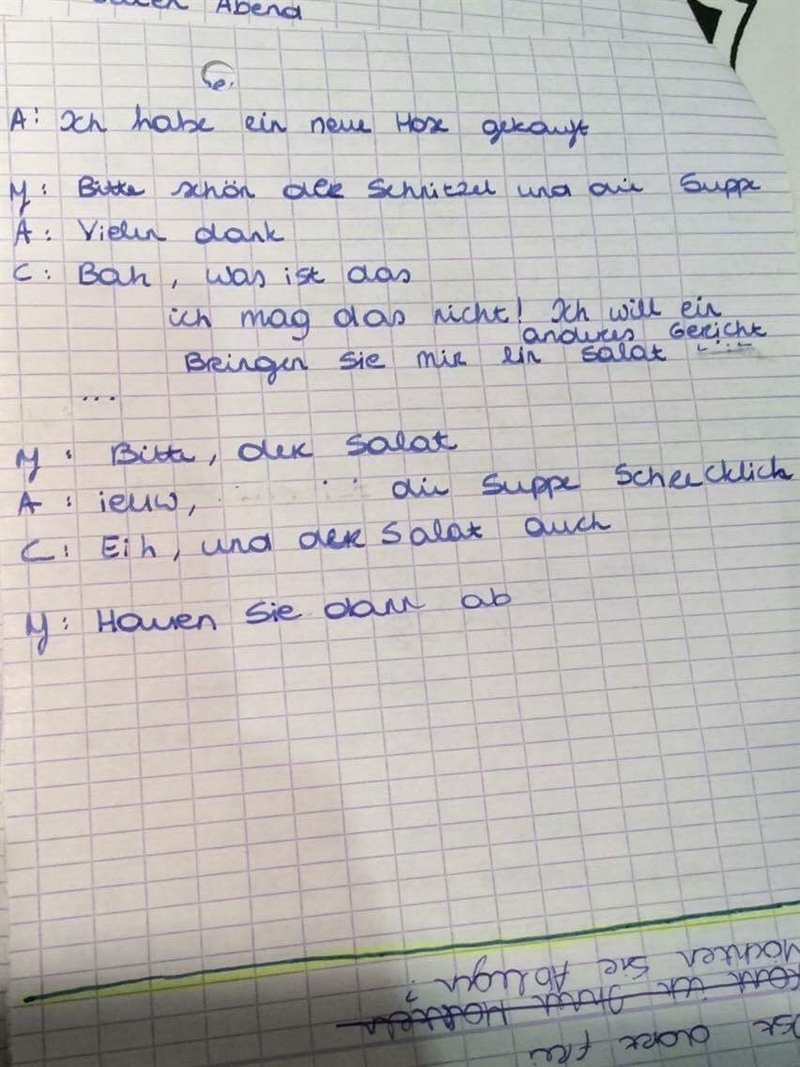 Abend
A: Ich habe ein neue Hose gekauft
M: Bitte schön der Schnitzel und die Suppe
A: Vielen dank
C: Bah, was ist das
ich mag das nicht! Ich will ein
anderes Gericht
Bringen Sie mir ein Salat
...
M: Bitte, der Salat
A: ieuw, die Suppe Schrecklich
C: Eih, und der Salat auch
M: Hauen Sie dann ab
Möchten Sie Ablegen?
Ist dort frei